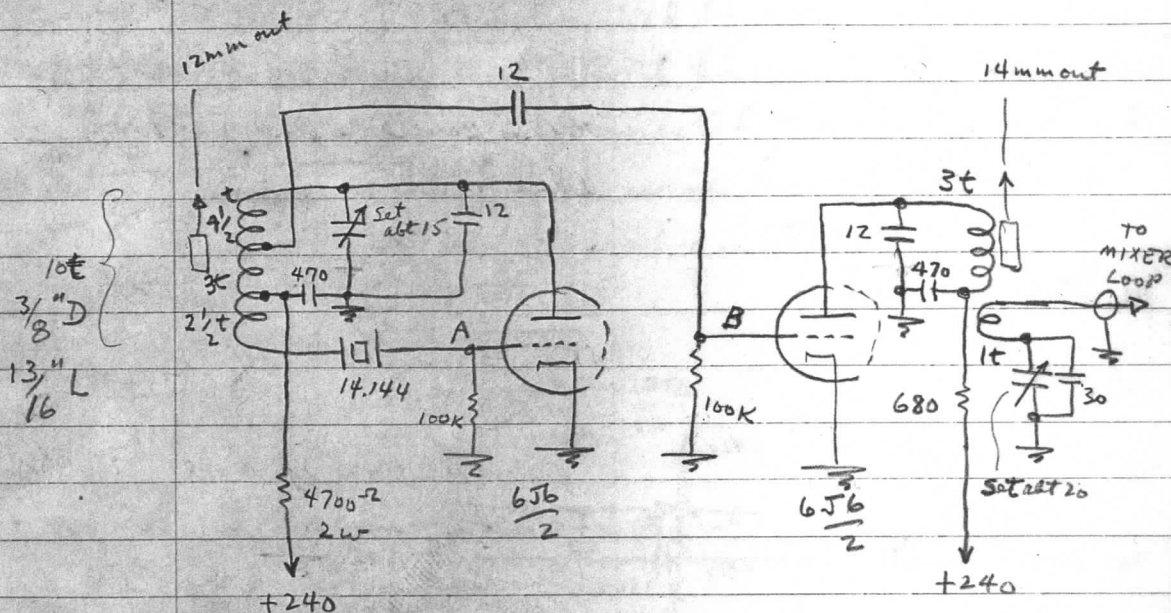 12mm out
12
14mm out
t
4½
3t
2½ t
10t
3/8" D
13/16" L
Set
abt 15
12
470
A
14.144
100K
4700Ω
2w
+240
6J6
2
B
100K
3t
12
470
TO
MIXER
LOOP
1t
30
680
Set abt 20
6J6
2
+240